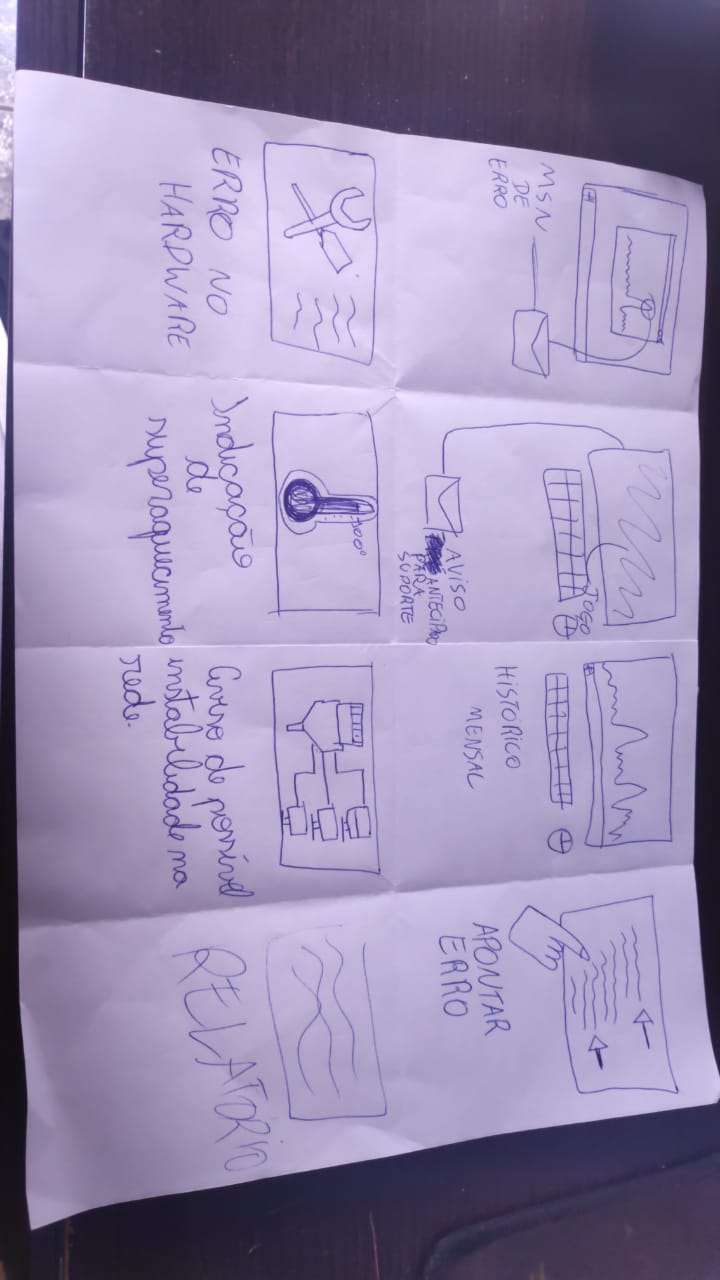 MSN
DE
ERRO
JOGO
AVISO
ANTECIPADO
PARA
SUPORTE
HISTÓRICO
MENSAL
APONTAR
ERRO
ERRO NO
HARDWARE
100°
Indicação
de
superaquecimento
Aviso de possível
instabilidade na
rede.
RELATÓRIO